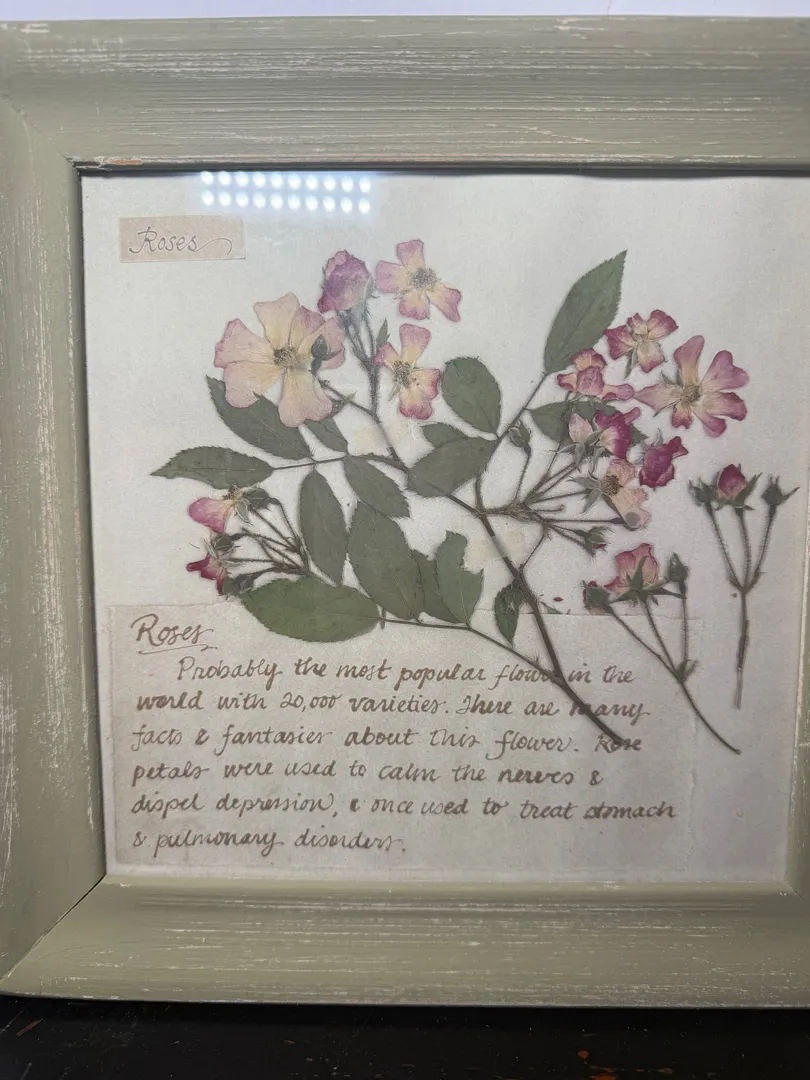 Roses
Roses
Probably the most popular flower in the
world with 20,000 varieties. There are many
facts & fantasies about this flower. Rose
petals were used to calm the nerves &
dispel depression, & once used to treat stomach
& pulmonary disorders.